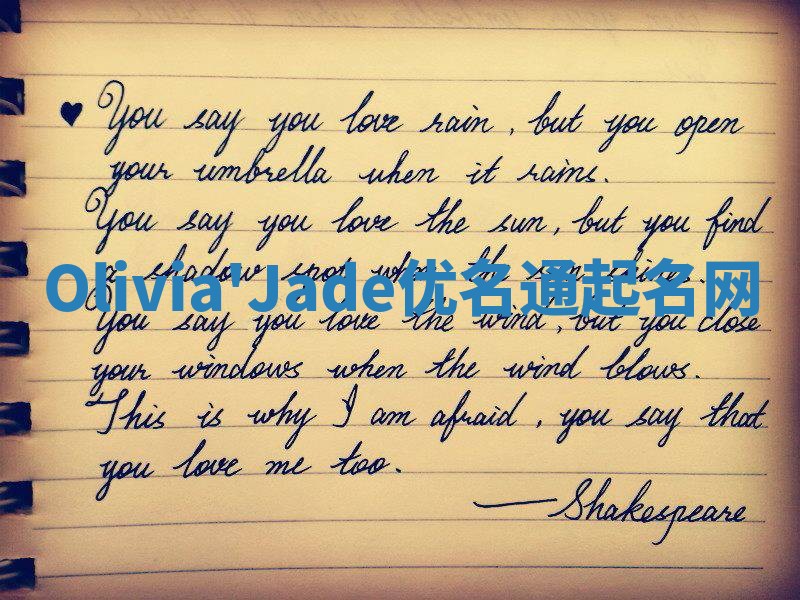 ♥ You say you love rain, but you open
your umbrella when it rains.
You say you love the sun, but you find
a shadow spot when the sun shines.
Olivia'Jade优名通起名网
You say you love the wind, but you close
your windows when the wind blows.
This is why I am afraid, you say that
you love me too.
— Shakespeare